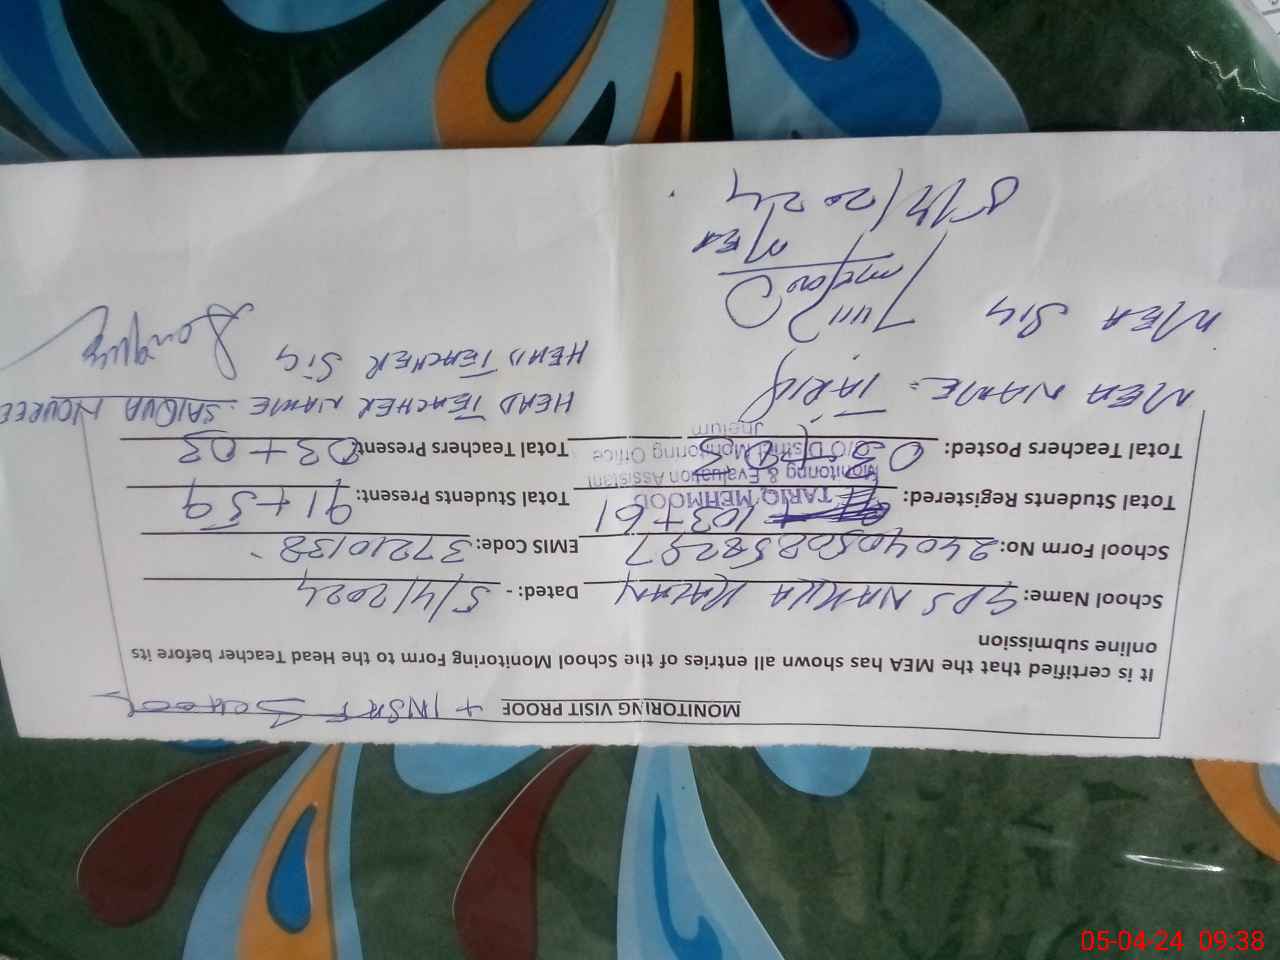 MONITORING VISIT PROOF + INSAF SCHOOL
It is certified that the MEA has shown all entries of the School Monitoring Form to the Head Teacher before its
online submission
School Name: GPS NAKKA KALAN Dated: - 5/4/2024
School Form No: 2404050858297 EMIS Code: 37210138
Total Students Registered: 103+61 Total Students Present: 91+59
Total Teachers Posted: 03+03 Total Teachers Present: 03+03
TARIQ MEHMOOD
Monitoring & Evaluation Assistant
O/O District Monitoring Office
Jhelum
MEA NAME = TARIQ HEAD TEACHER NAME. SAIQUA NOUREE
MEA SIG HEAD TEACHER SIG
MEA
5/4/2024
05-04-24 09:38